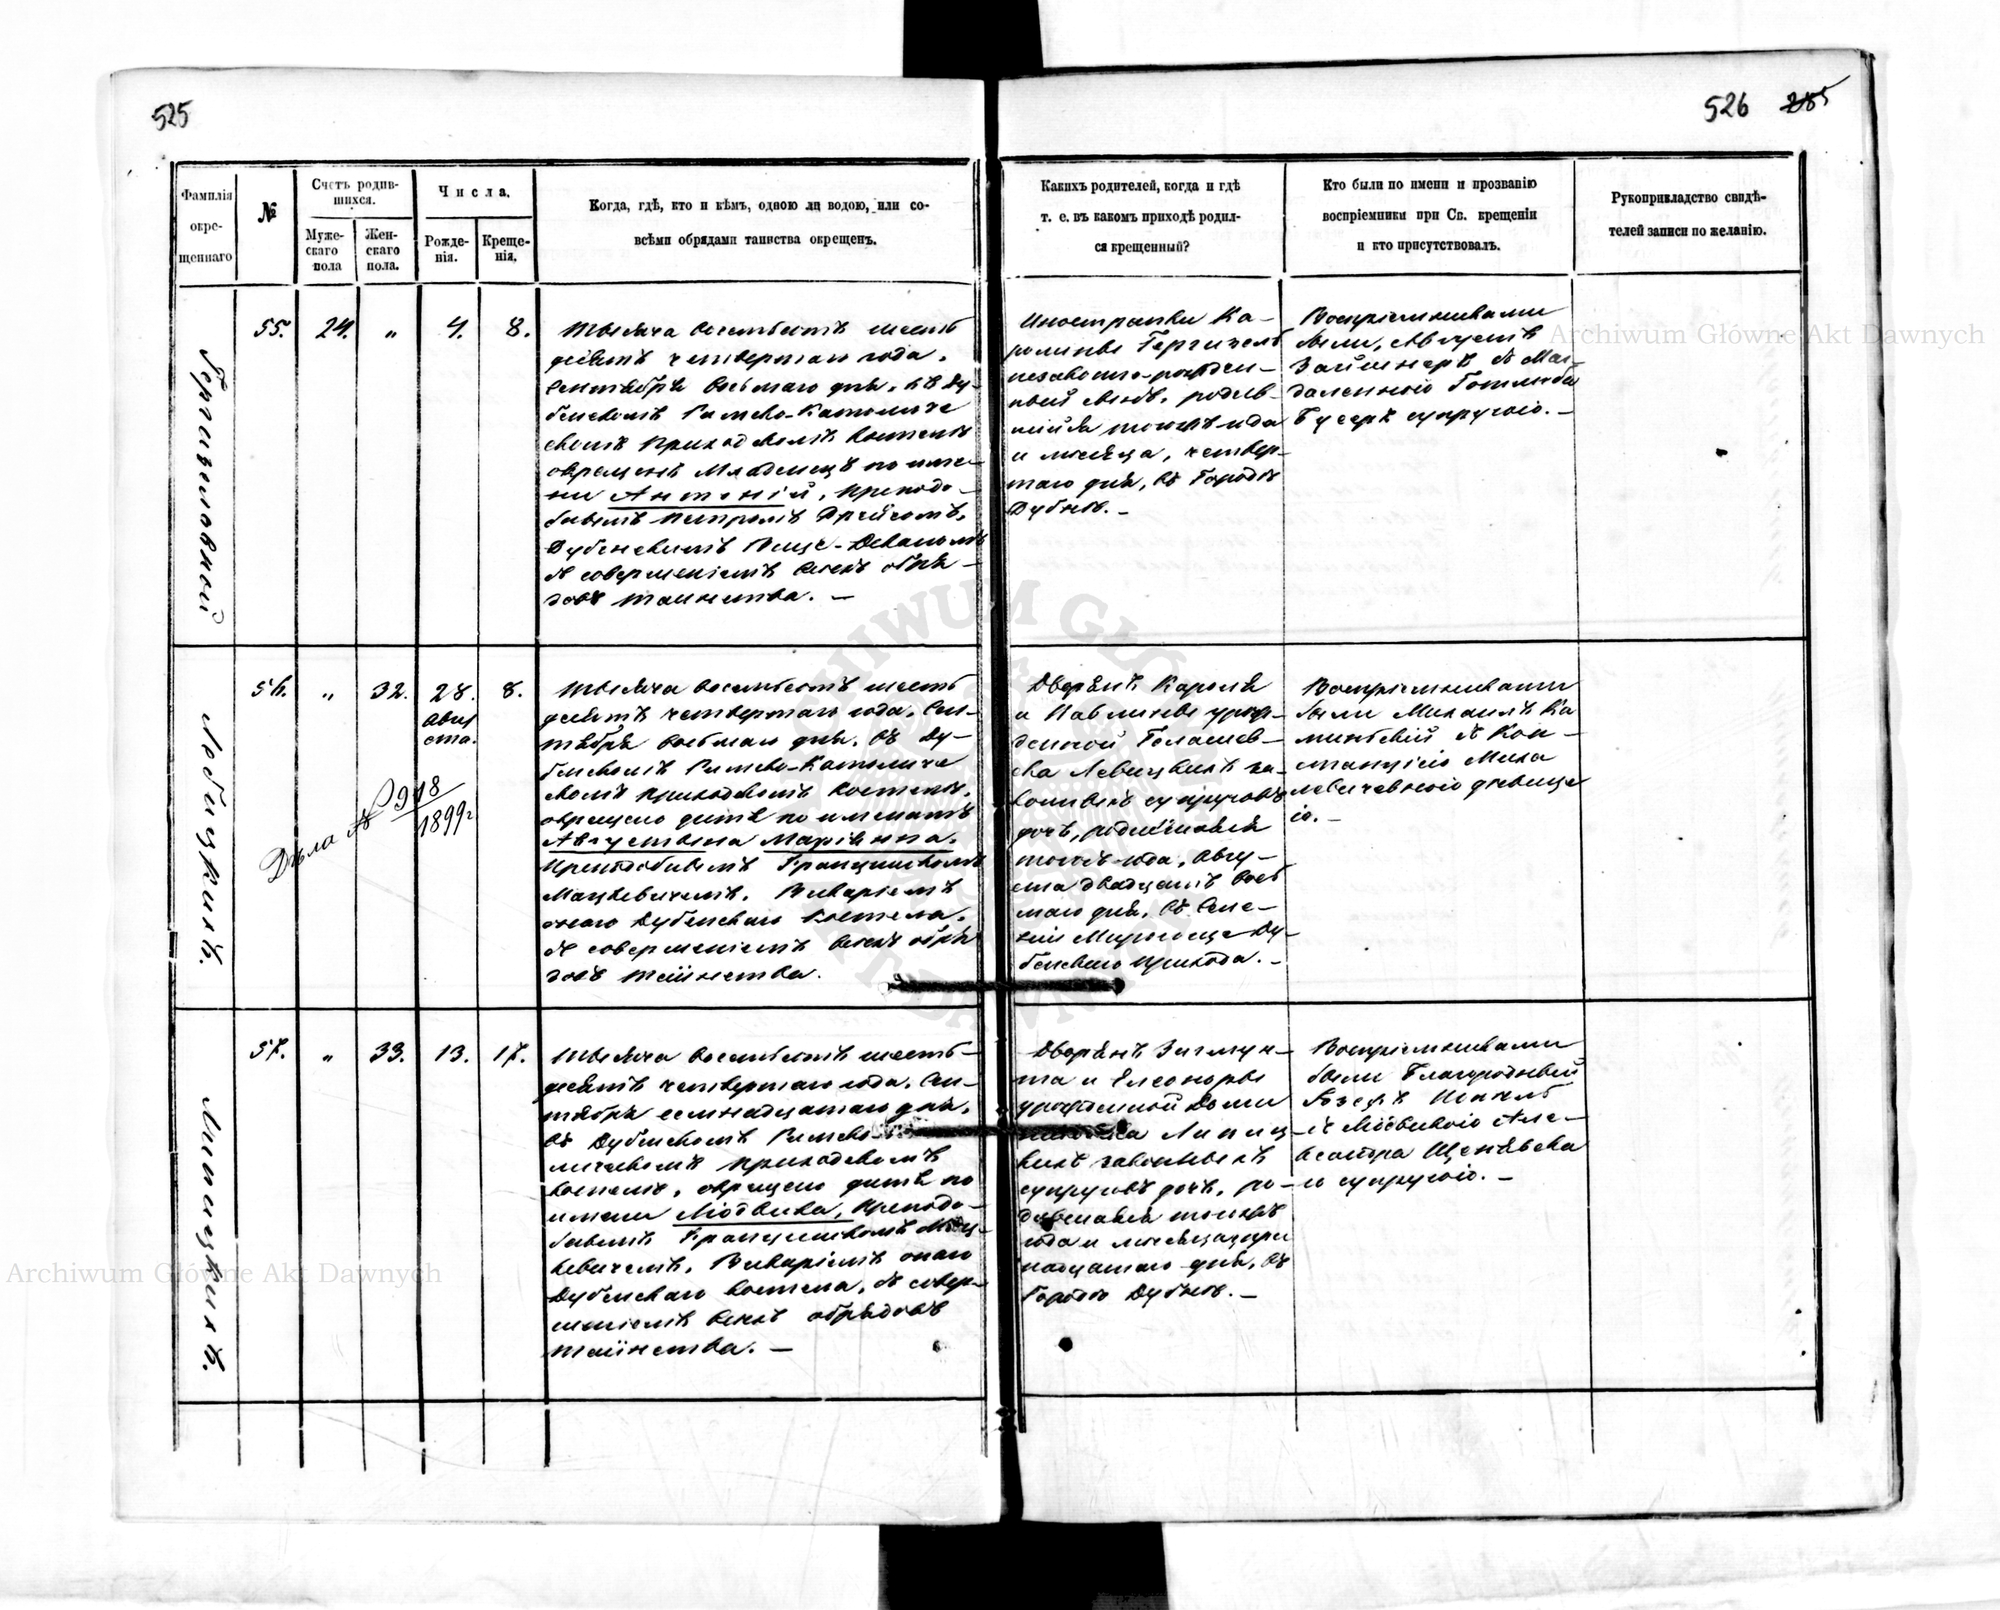 525
526 285
Фамилія
окре-
щеннаго
№
Счетъ родив-
шихся.
Муже-
скаго
пола
Жен-
скаго
пола.
Числа.
Рожде-
нія.
Креще-
нія.
Когда, гдѣ, кто и кѣмъ, одною ли водою, или со-
всѣми обрядами таинства окрещенъ.
Какихъ родителей, когда и гдѣ
т. е. въ какомъ приходѣ родил-
ся крещенный?
Кто были по имени и прозванію
воспріемники при Св. крещеніи
и кто присутствовалъ.
Рукоприкладство свидѣ-
телей записи по желанію.
55.
24.
„
4.
8.
Тысяча восемьсотъ шесть
десятъ четвертаго года,
Сентября восьмаго дня, въ Ду-
бенскомъ Римско-Католиче
скомъ приходскомъ костелѣ
окрещенъ младенецъ по име-
ни Антоній, преподо-
бнымъ Петромъ
Дубенскимъ Вице-Деканомъ
съ совершеніемъ всѣхъ обря-
довъ таинства. —
Иностранки Ка-
ролины
незаконно-рожден-
ный сынъ, родив-
шійся тогожъ года
и мѣсяца, четвер-
таго дня, въ городѣ
Дубнѣ. —
Воспріемниками
были, Августъ
съ Маг-
даленою Готлиба
супругою. —
56.
„
32.
28.
Авгу
ста.
8.
Левицкихъ.
Дѣла № 918
1899 г.
Тысяча восемьсотъ шесть
десятъ четвертаго года, Сен-
тября восьмаго дня, въ Ду-
бенскомъ Римско-Католиче
скомъ приходскомъ костелѣ,
окрещено дитя по именамъ
Августина Маріанна,
преподобнымъ Францишкомъ
Мацкевичемъ, Викаріемъ
онаго Дубенскаго костела,
съ совершеніемъ всѣхъ обря
довъ таинства.
Дворянъ Кароля
и Павлины урож-
денной
Левицкихъ за-
конныхъ супруговъ
дочь, родившаяся
тогожъ года, Авгу-
ста двадцать вось
маго дня, въ Селе-
ніи Мирогоще Ду-
бенскаго прихода. —
Воспріемниками
были Михаилъ Ка
минскій съ Кон-
станціею Миха
левичевною дѣвице
ю. —
57.
„
33.
13.
17.
Липецкихъ.
Тысяча восемьсотъ шесть-
десятъ четвертаго года, Сен-
тября семнадцатаго дня,
въ Дубенскомъ Римско
личискомъ приходскомъ
костелѣ, окрещено дитя по
имени Людвика, преподо-
бнымъ Францишкомъ Мац-
кевичемъ, Викаріемъ онаго
Дубенскаго костела, съ совер-
шеніемъ всѣхъ обрядовъ
таинства. —
Дворянъ Зигмун-
та и Элеоноры
урожденной
законныхъ
супруговъ дочь, ро-
дившаяся тогожъ
года и мѣсяца три
надцатаго дня, въ
городѣ Дубнѣ. —
Воспріемниками
были Благородный
Іозефъ
съ Людвикою Але-
ксандра
ю супругою. —
Archiwum Główne Akt Dawnych
Archiwum Główne Akt Dawnych